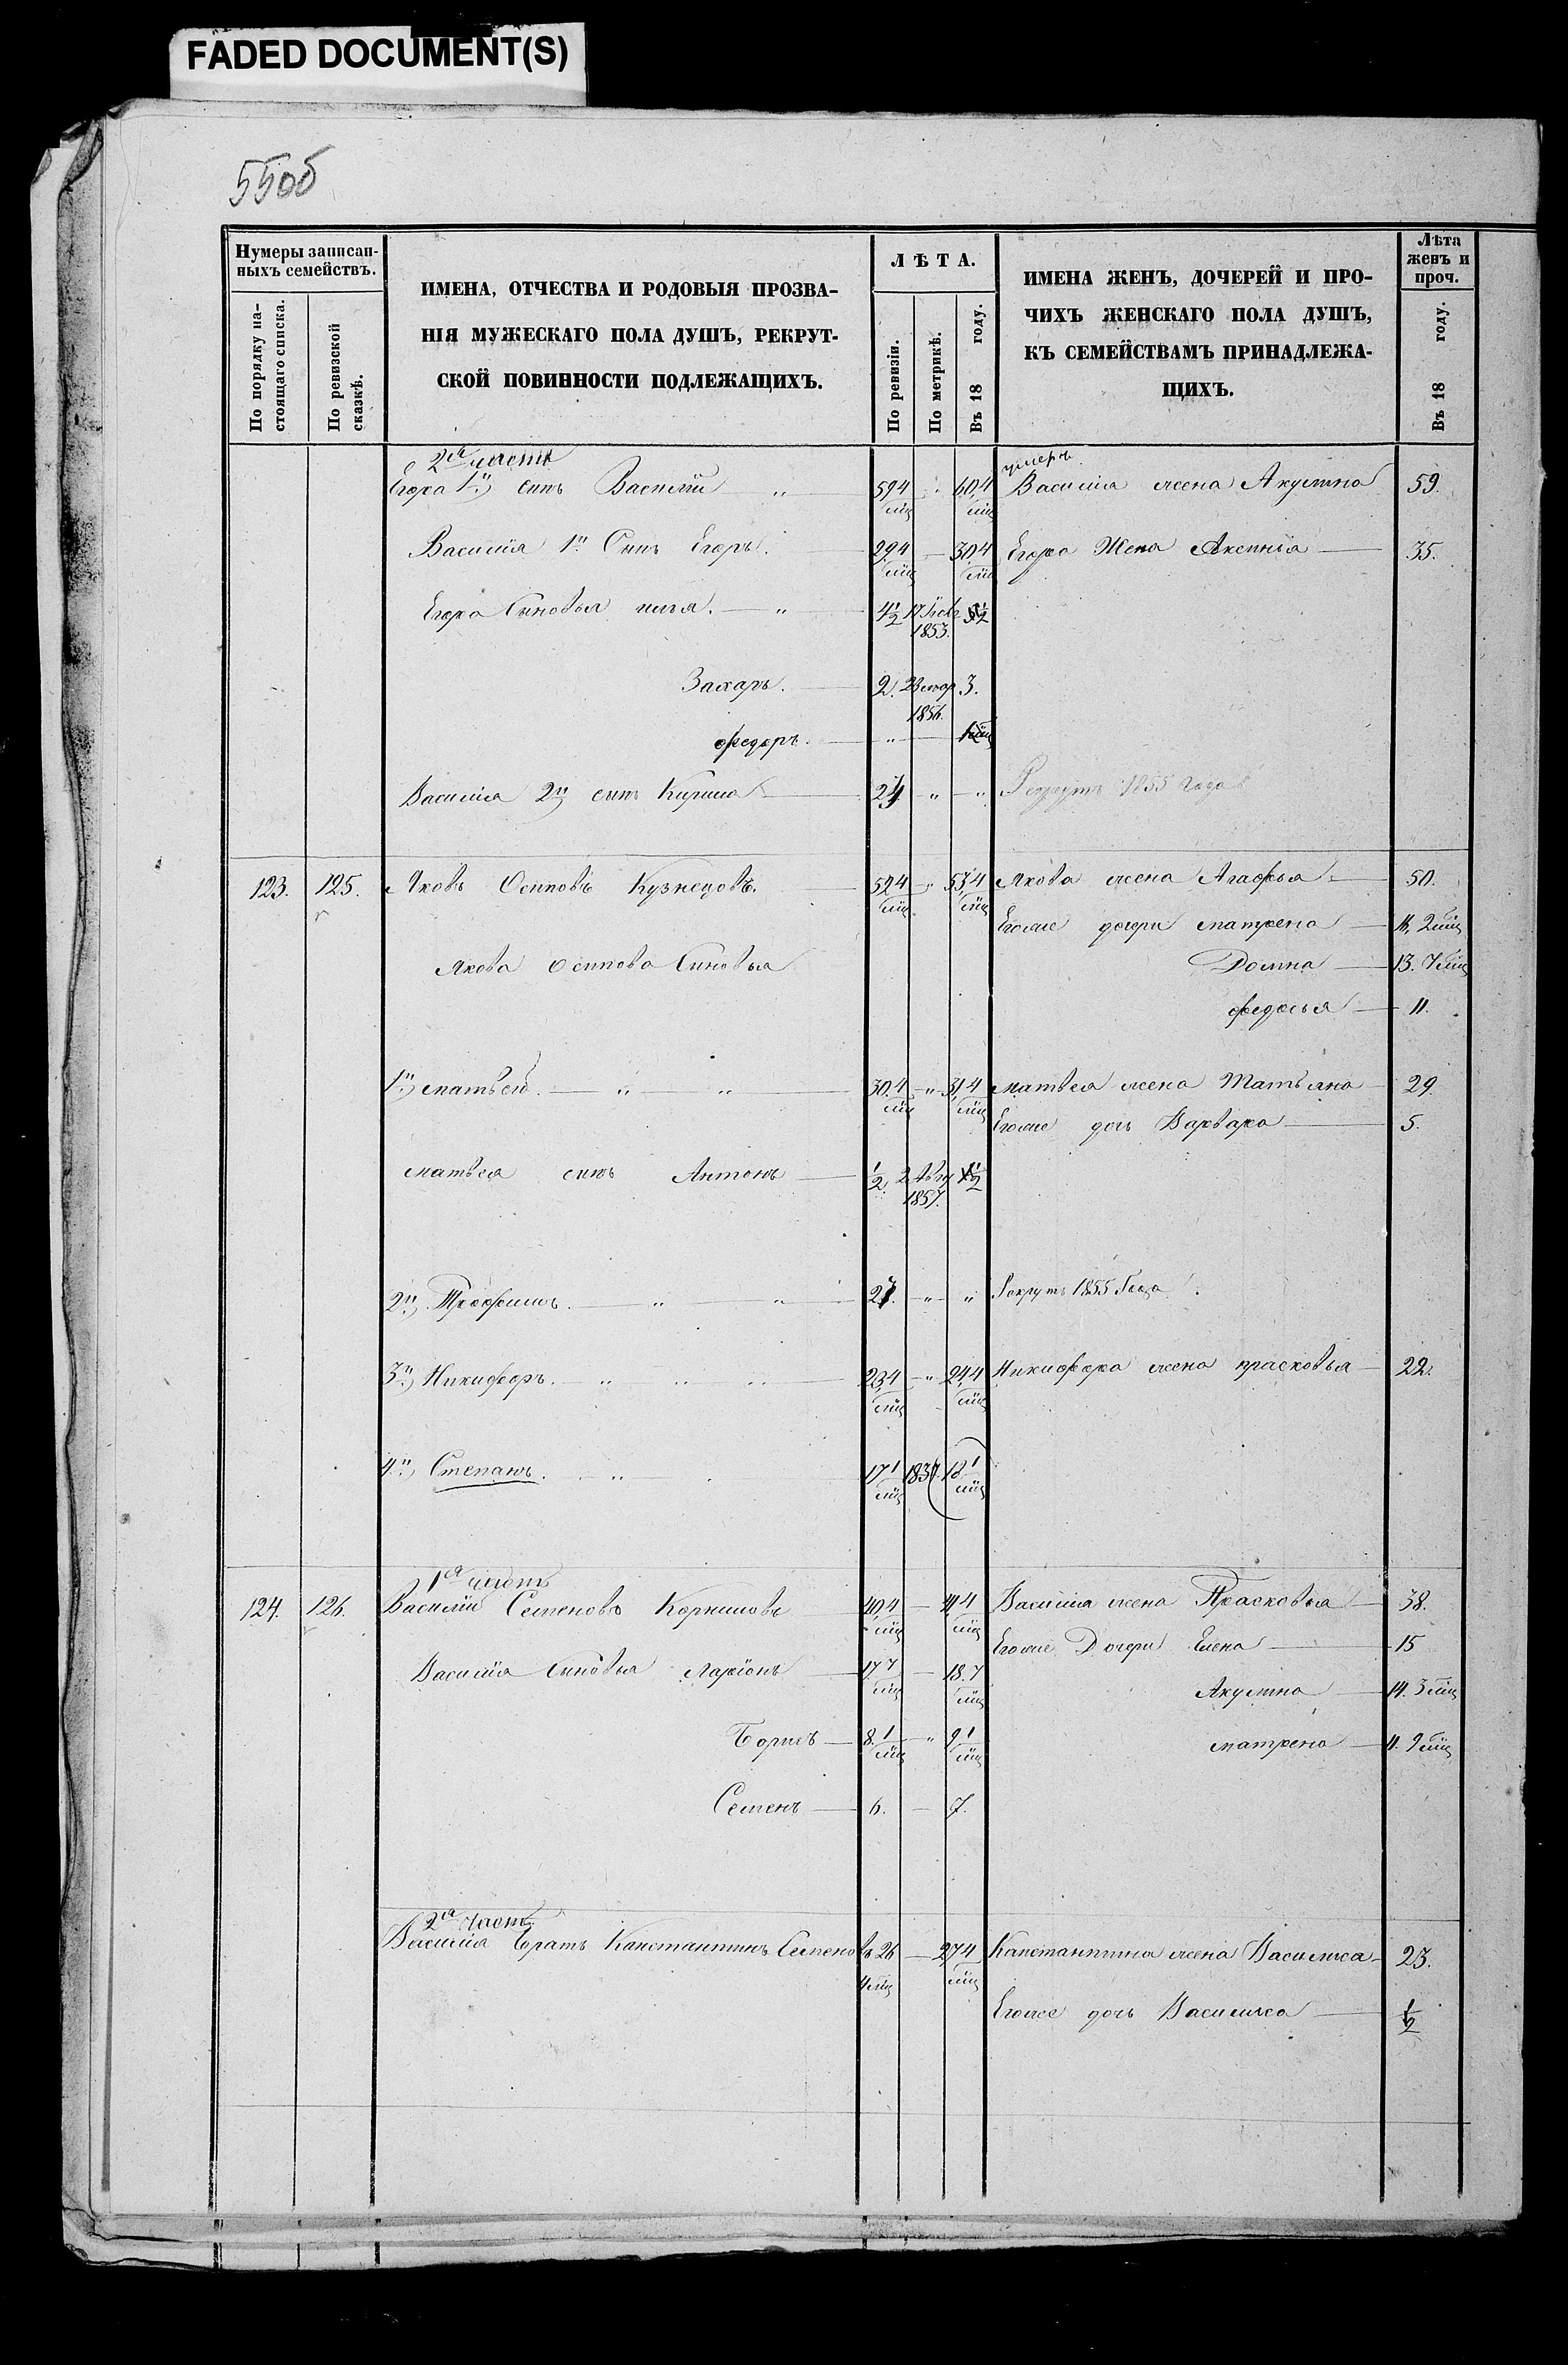 FADED DOCUMENT(S)
55об
Нумеры записан-
ныхъ семействъ.
По порядку на-
стоящаго списка.
По ревизской
сказкѣ.
ИМЕНА, ОТЧЕСТВА И РОДОВЫЯ ПРОЗВА-
НІЯ МУЖЕСКАГО ПОЛА ДУШЪ, РЕКРУТ-
СКОЙ ПОВИННОСТИ ПОДЛЕЖАЩИХЪ.
ЛѢТА.
По ревизіи.
По метрикѣ.
Въ 18 году.
ИМЕНА ЖЕНЪ, ДОЧЕРЕЙ И ПРО-
ЧИХЪ ЖЕНСКАГО ПОЛА ДУШЪ,
КЪ СЕМЕЙСТВАМЪ ПРИНАДЛЕЖА-
ЩИХЪ.
Лѣта
женъ и
проч.
Въ 18 году.
2я часть
умеръ.
Егора 1й) сынъ Василій " 59 4/мц " 60 4/мц Василія жена Акулина 59.
Василія 1й Сынъ Егоръ. 29 4/мц — 30 4/мц Егора Жена Аксинья 35.
Егора Сыновья Илья. " 4 1/2 17 5 1/2
1853.
Захаръ. 2. 23 3.
1856.
федоръ. "
Василія 2й) сынъ Кирила 24 " " Рекрутъ 1855 Года
123. 125. Яковъ Осиповъ Кузнецовъ. 52 4/мц " 53 4/мц Якова жена Агафья 50.
Егоже дочери матрена 2 мц
Якова Осипова Сыновья Домна 13. 7 мц
федосья 11.
1й) матвей. " " 30. 4/мц " 31, 4/мц матвея жена Татьяна 29.
Егоже дочь Варвара 5.
матвея сынъ Антонъ 1/2 2 Авгу 1 1/2
1857.
2й) Трофимъ. " " 27. " " Рекрутъ 1855 Года
3й) Никифоръ. " " " 23, 4/мц " 24, 4/мц Никифора жена прасковья 22.
4й) Степанъ. " 17 1/мц 18 1/мц
1я часть
124. 126. Василій Семеновъ Корниловъ 40, 4/мц — 41 4/мц Василія жена Прасковья 38.
Егоже Дочери Елена 15
Василія Сыновья Ларіонъ 17, 7/мц — 18. 7/мц
Акулина 14. 3 мц
Борисъ 8. 1/мц " 9 1/мц матрена 11. 9 мц
Семенъ 6. — 7.
2я часть
Василія братъ Канстантинъ Семеновъ 26 — 27 4/мц Канстантина жена Василиса 23.
4 мц
Егоже дочь Василиса 1/2